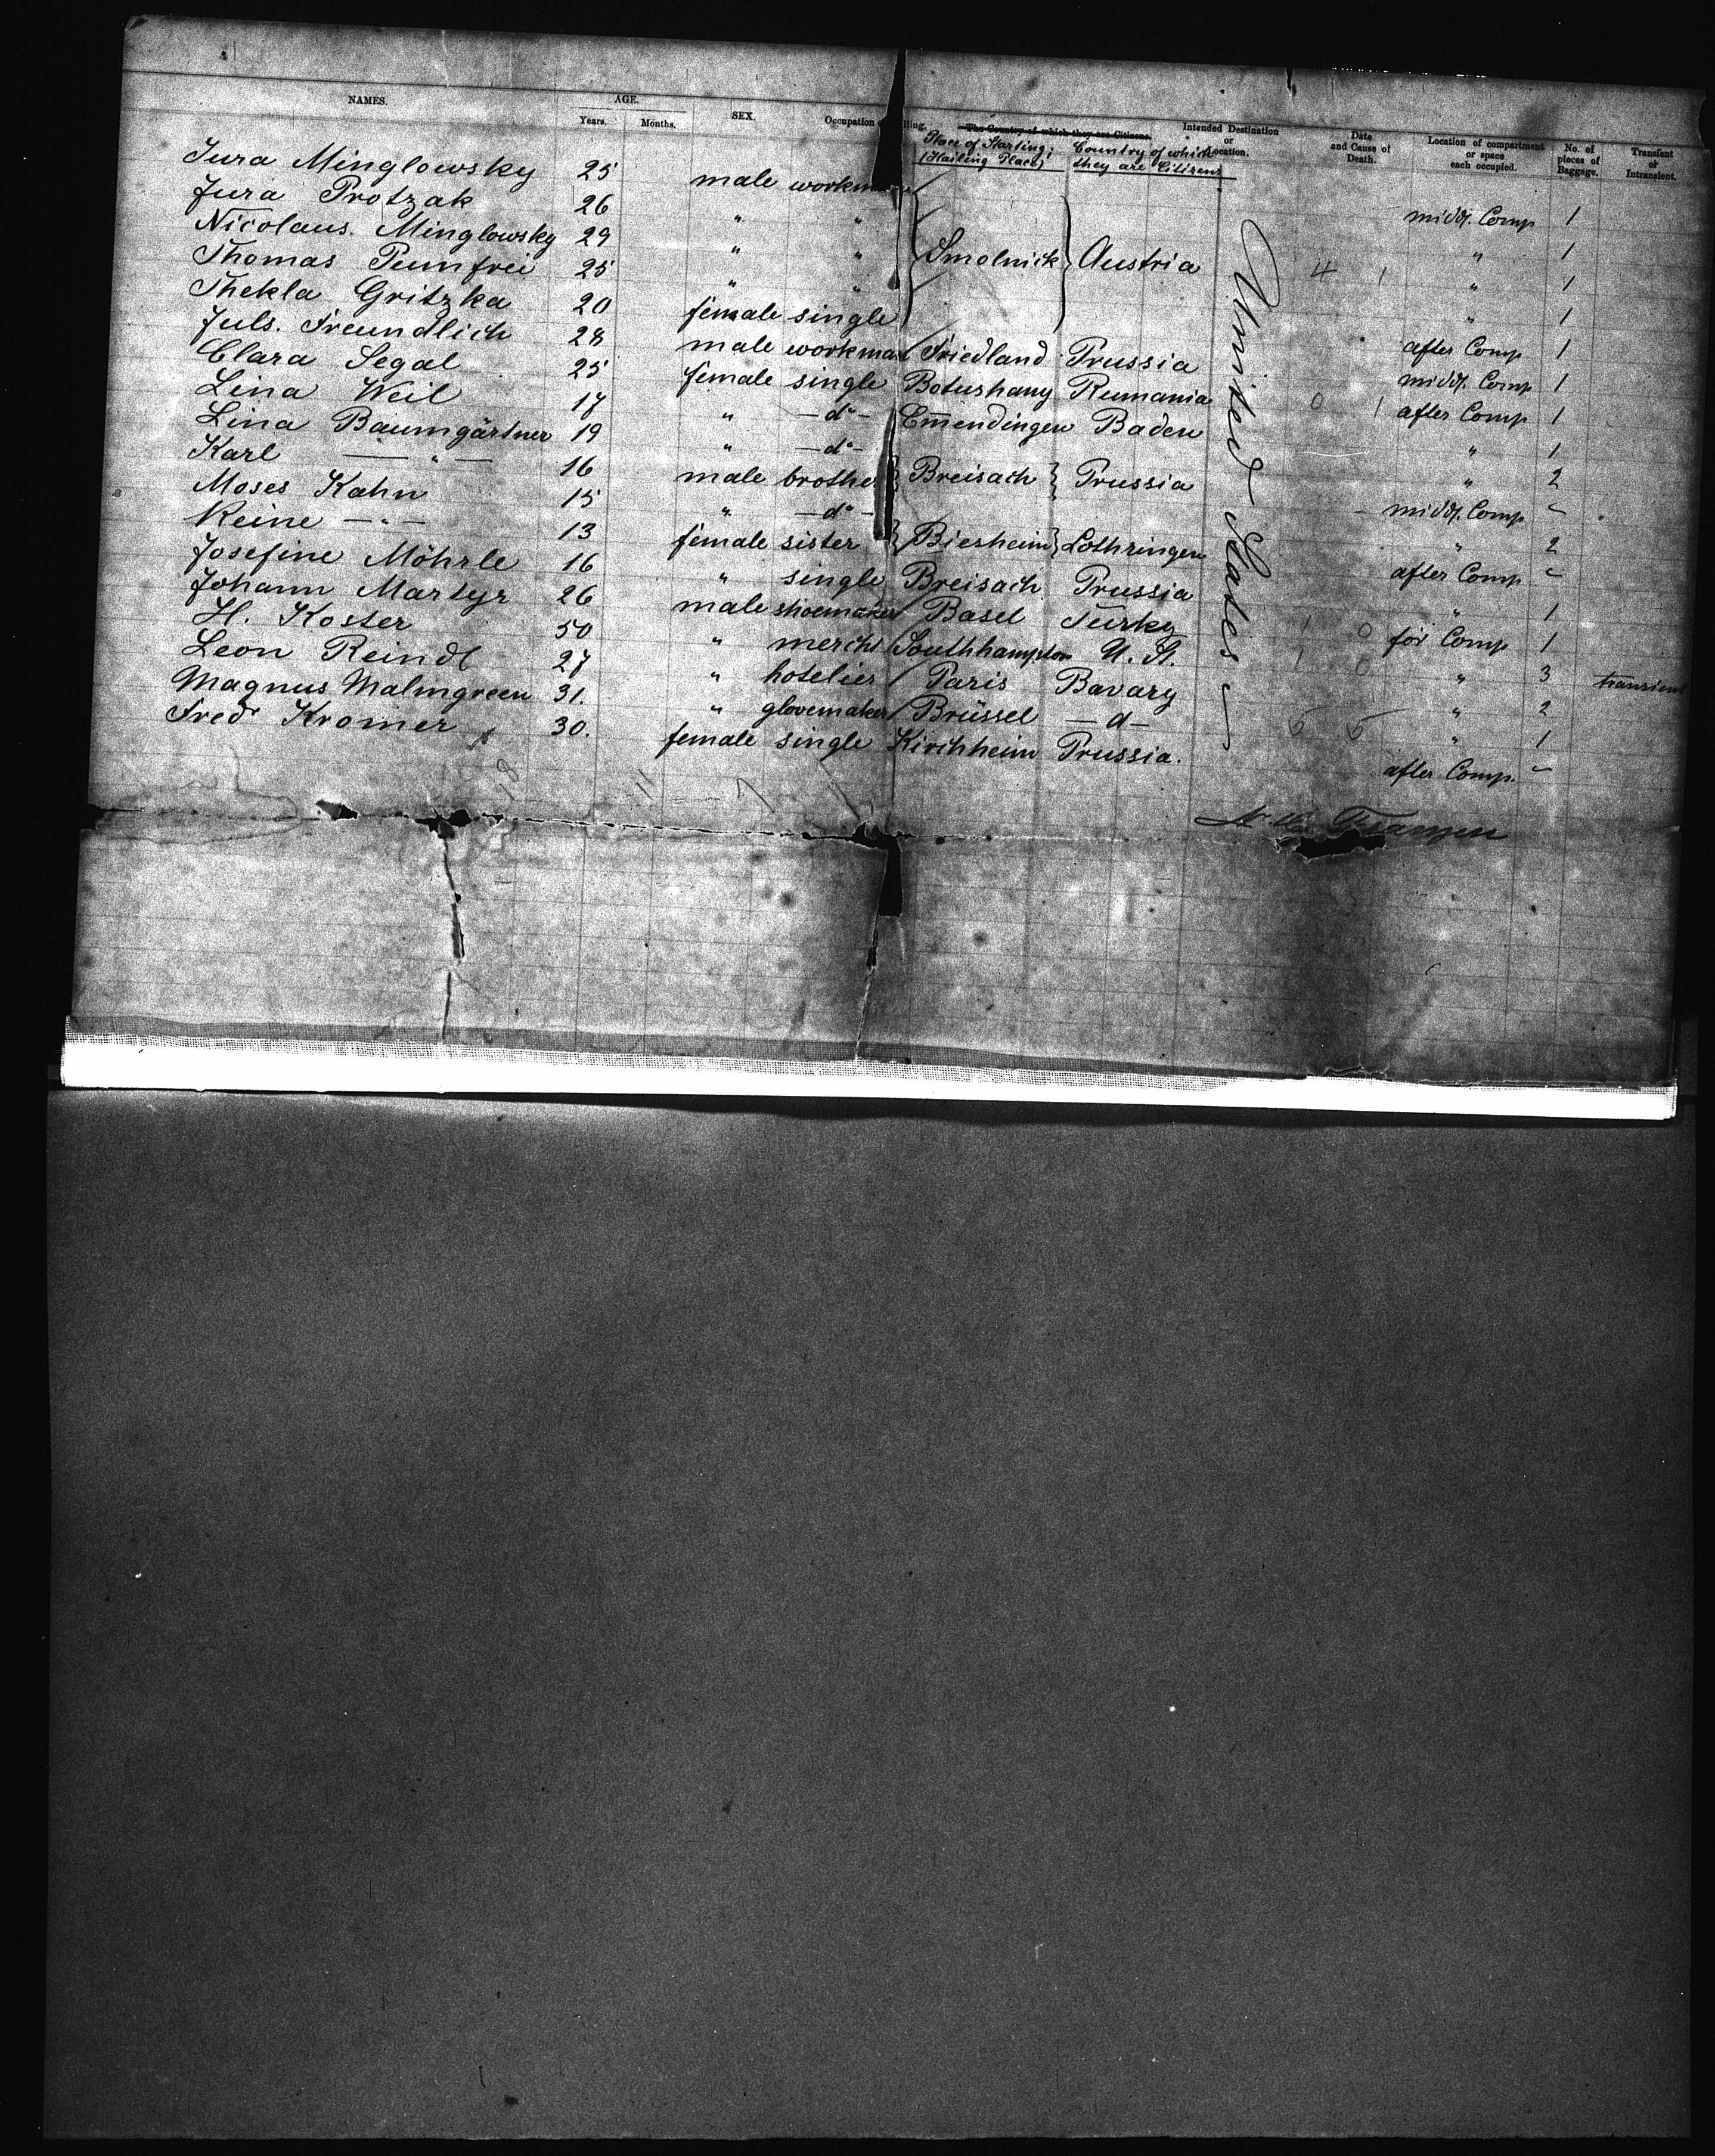 NAMES. AGE. Years. Months. SEX. Occupation The Country of which they are Citizens. Intended Destination or Location. Date and Cause of Death. Location of compartment or space each occupied. No. of pieces of Baggage. Transient or Intransient.
Place of Starting; (Hailing Place) Country of which they are Citizens
Jura Minglowsky 25 male workman middl. Comp 1
Jura Protzak 26 " " " 1
Nicolaus Minglowsky 29 " " Smolnick Austria 4 1 " 1
Thomas Pumfrei 25 " " " 1
Thekla Gritzka 20 female single after Comp 1
Juls. Freundlich 28 male workman Friedland Prussia middl. Comp 1
Clara Segal 25 female single Botushany Rumania 0 1 after Comp 1
Lina Weil 17 " — do — Em̅endingen Baden " 1
Lina Baumgärtner 19 " — do — " 2
Karl — " — 16 male brother Breisach Prussia middl. Comp -
Moses Kahn 15 " — do — " 2
Reine — " — 13 female sister Biesheim Lothringen after Comp -
Josefine Möhrle 16 " single Breisach Prussia " 1
Johann Martyr 26 male shoemaker Basel Türky 1 0 for Comp 1
H. Koster 50 " mercht Southhampton U. St. 1 0 " 3 transient
Leon Reindl 27 " hotelier Paris Bavary " 2
Magnus Malmgreen 31. " glovemaker Brüssel — d — 5 5 " 1
Fred Kromer 30. female single Kirchheim Prussia. after Comp. -
United States
18 11 7